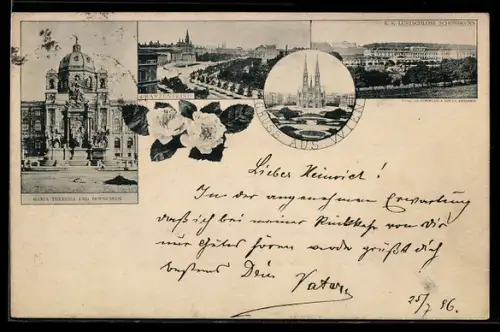 K. K. LUSTSCHLOSS SCHÖNBRUNN
GRUSS AUS WIEN
MARIA THERESIA UND HOFMUSEUM
Lieber Heinrich!
In der angenehmen Erwartung
daß ich bei meiner Rückkehr von dir
nur Gutes hören werde grüßt dich
bestens Dein Vater
25/7 96.